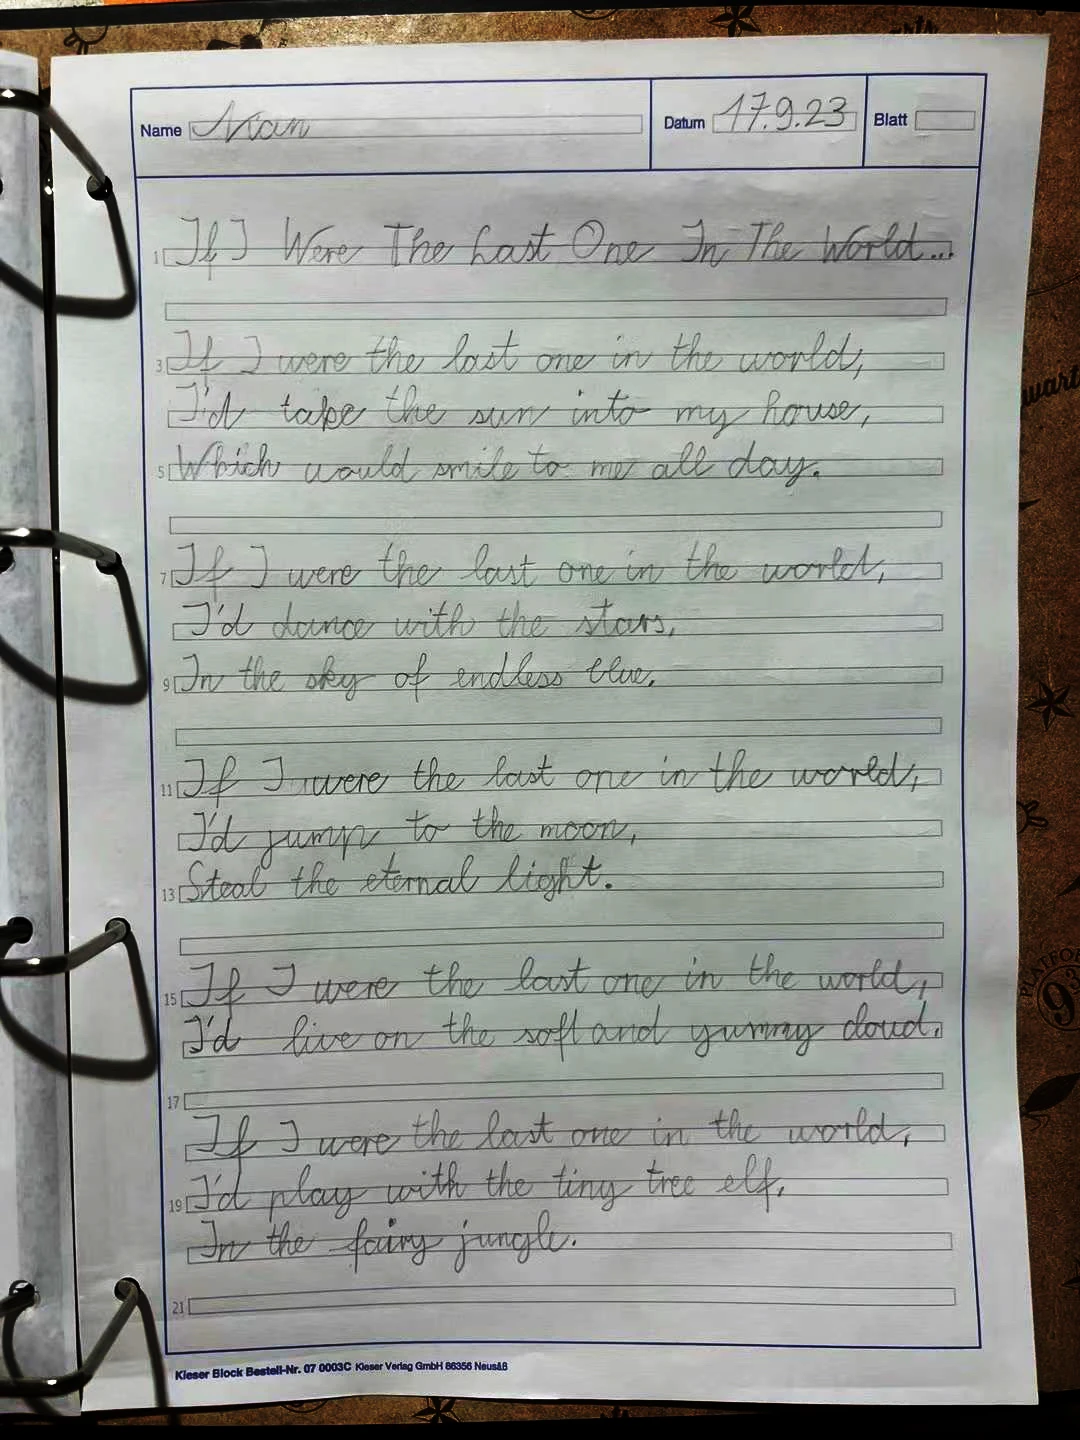 Name
Datum 17.9.23 Blatt
1 If I Were The Last One In The World...
3 If I were the last one in the world,
I'd take the sun into my house,
5 Which would smile to me all day.
7 If I were the last one in the world,
I'd dance with the stars,
9 In the sky of endless blue.
11 If I were the last one in the world,
I'd jump to the moon,
13 Steal the eternal light.
15 If I were the last one in the world,
I'd live on the soft and yummy cloud.
17
If I were the last one in the world,
19 I'd play with the tiny tree elf,
In the fairy jungle.
21
Kieser Block Bestell-Nr. 07 0003C Kieser Verlag GmbH 86356 Neusäß
PLATFOR
9